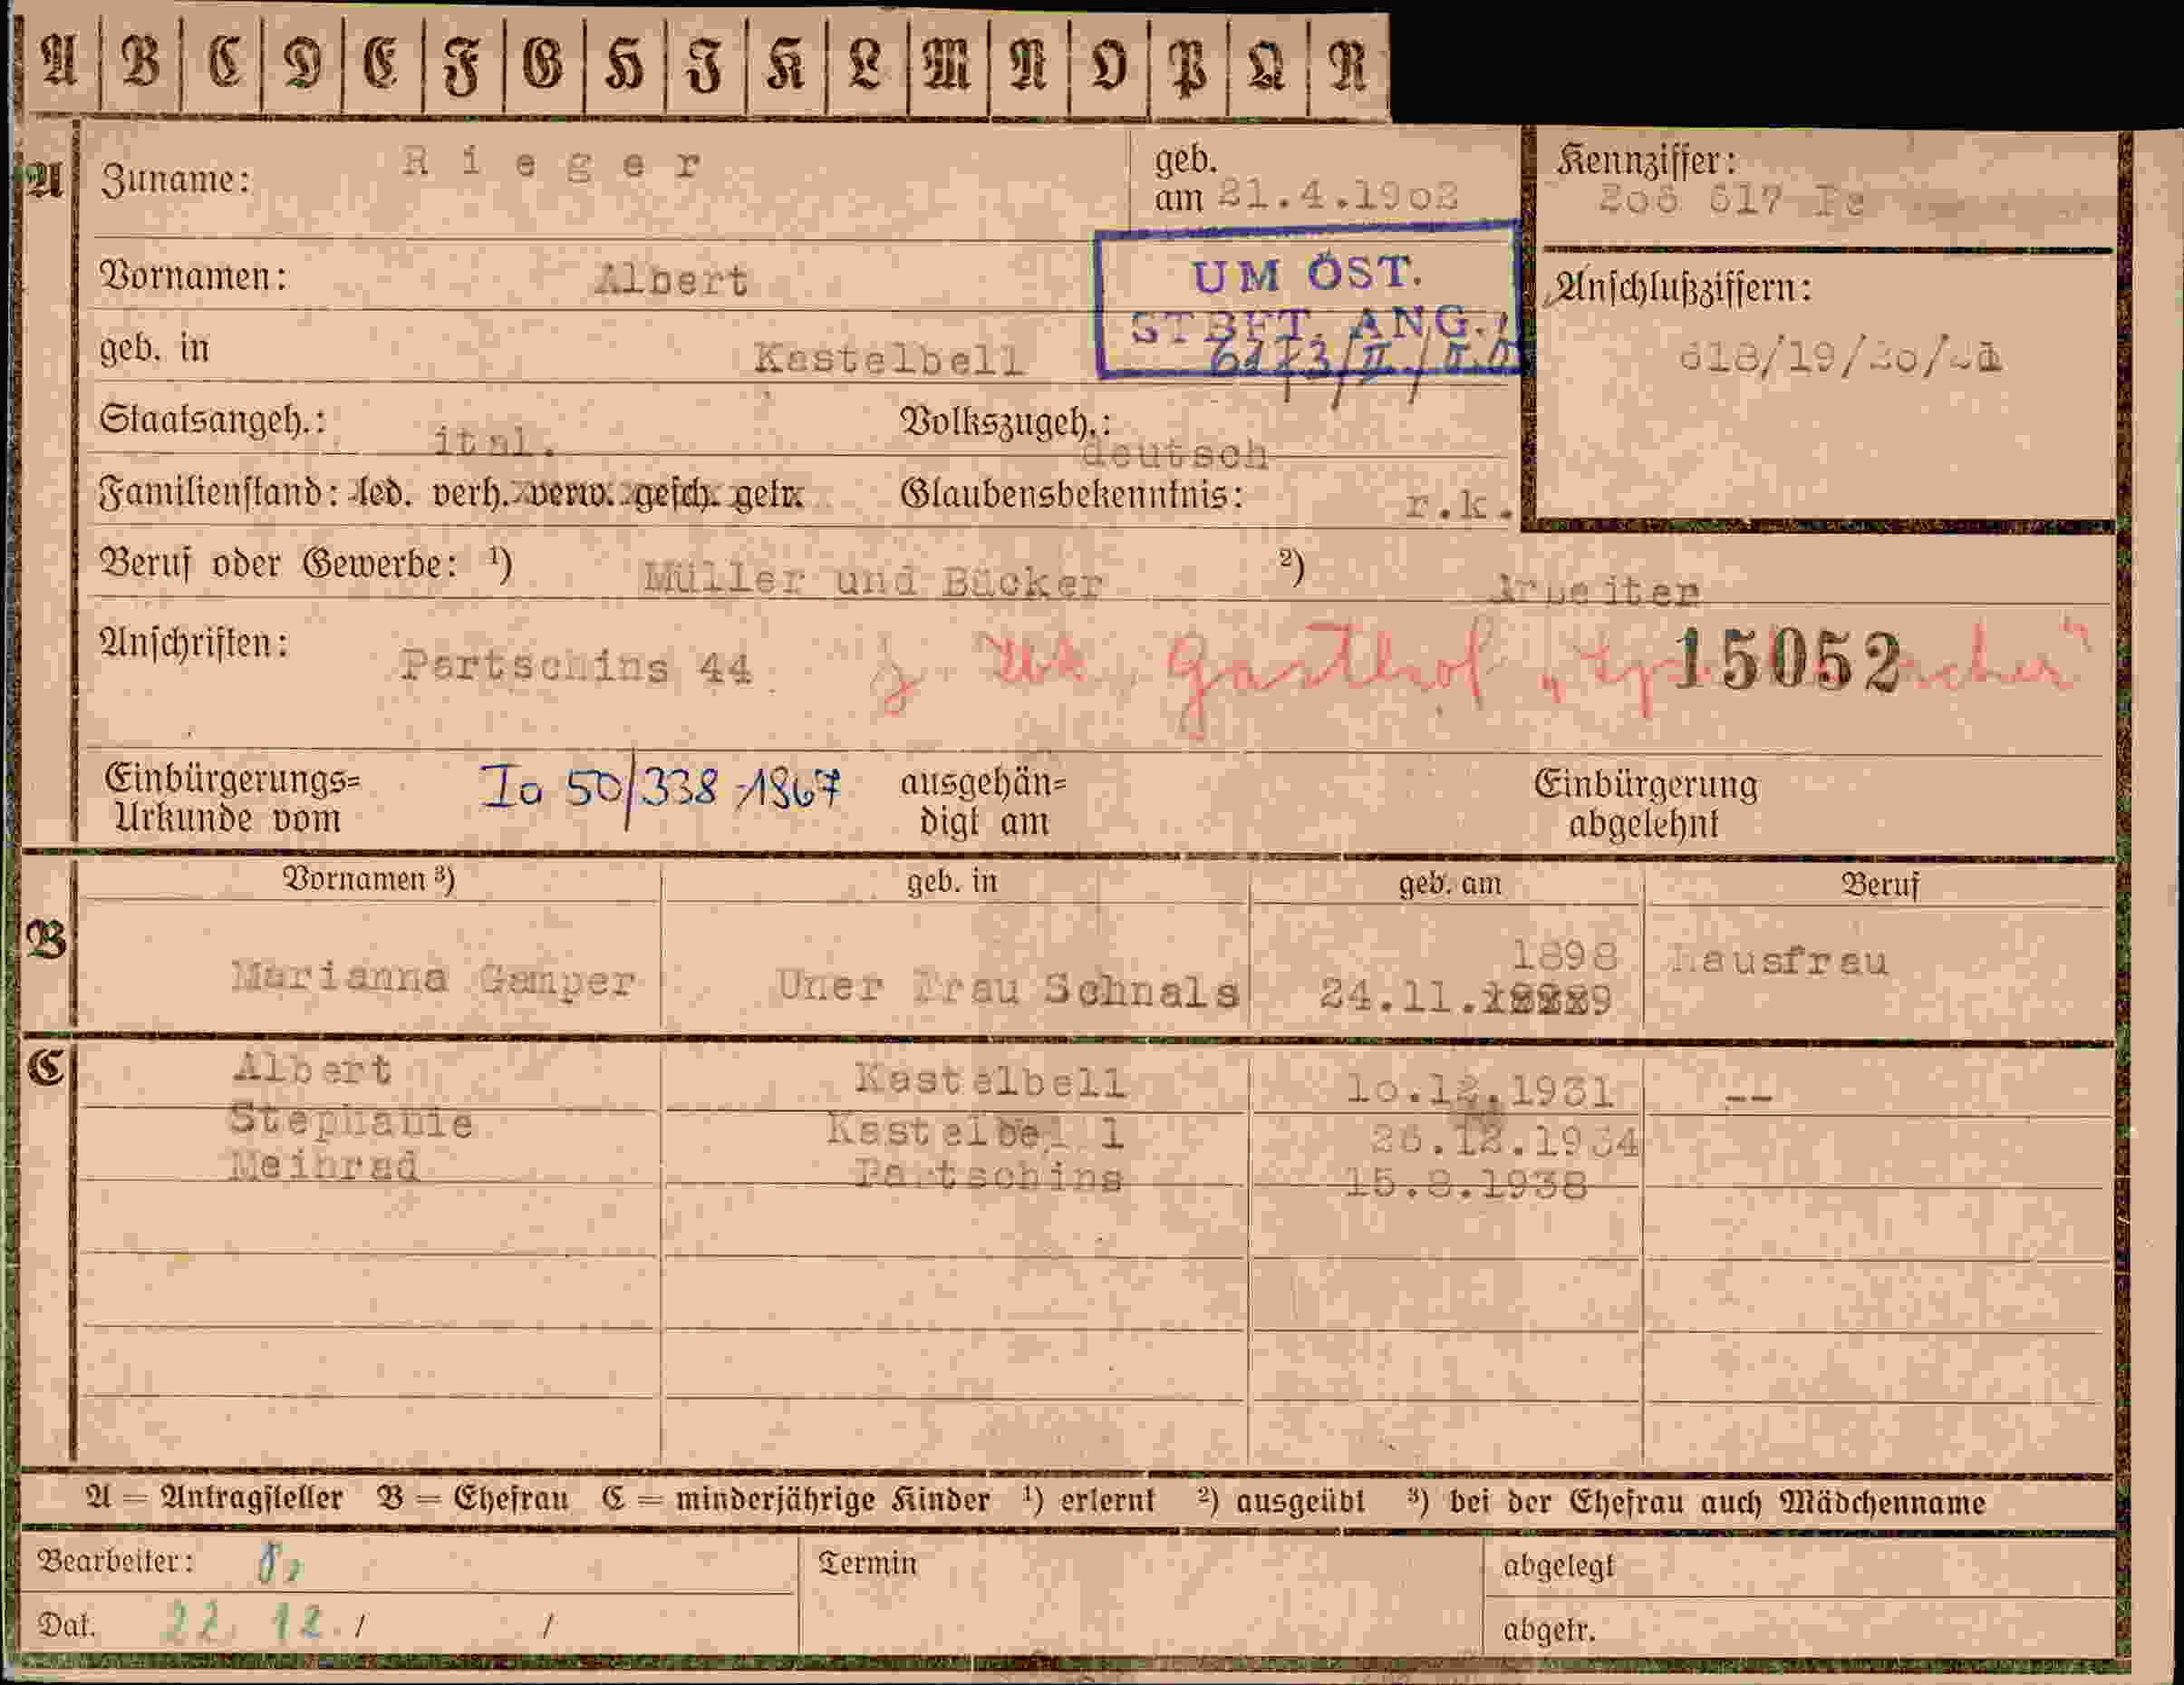 A B C D E F G H I K L M N O P Q R
A Zuname: Rieger geb. am 21.4.1902 Kennziffer: 617
Vornamen: Albert UM ÖST. Anschlußziffern:
geb. in Kastelbell STBFT. ANG.
Staatsangeh.: ital. Volkszugeh.: deutsch
Familienstand: led. verh. verw. gesch. getr. Glaubensbekenntnis: r.k.
Beruf oder Gewerbe: 1) Müller und Bäcker 2) Arbeiter
Anschriften: Partschins 44 Gasthof 15052
Einbürgerungs=
Urkunde vom Ia 50/338-1967 ausgehän=
digt am Einbürgerung
abgelehnt
Vornamen 3) geb. in geb. am Beruf
1898
B Marianna Gamper Frau Schnals 24.11. Hausfrau
C Albert Kastelbell 10.12.1931 --
Stephanie Kastelbell 26.12.1934
Meinrad Partschins 15.8.1938
A = Antragsteller B = Ehefrau C = minderjährige Kinder 1) erlernt 2) ausgeübt 3) bei der Ehefrau auch Mädchenname
Bearbeiter: Termin abgelegt
Dat. 22. 12. / / abgetr.